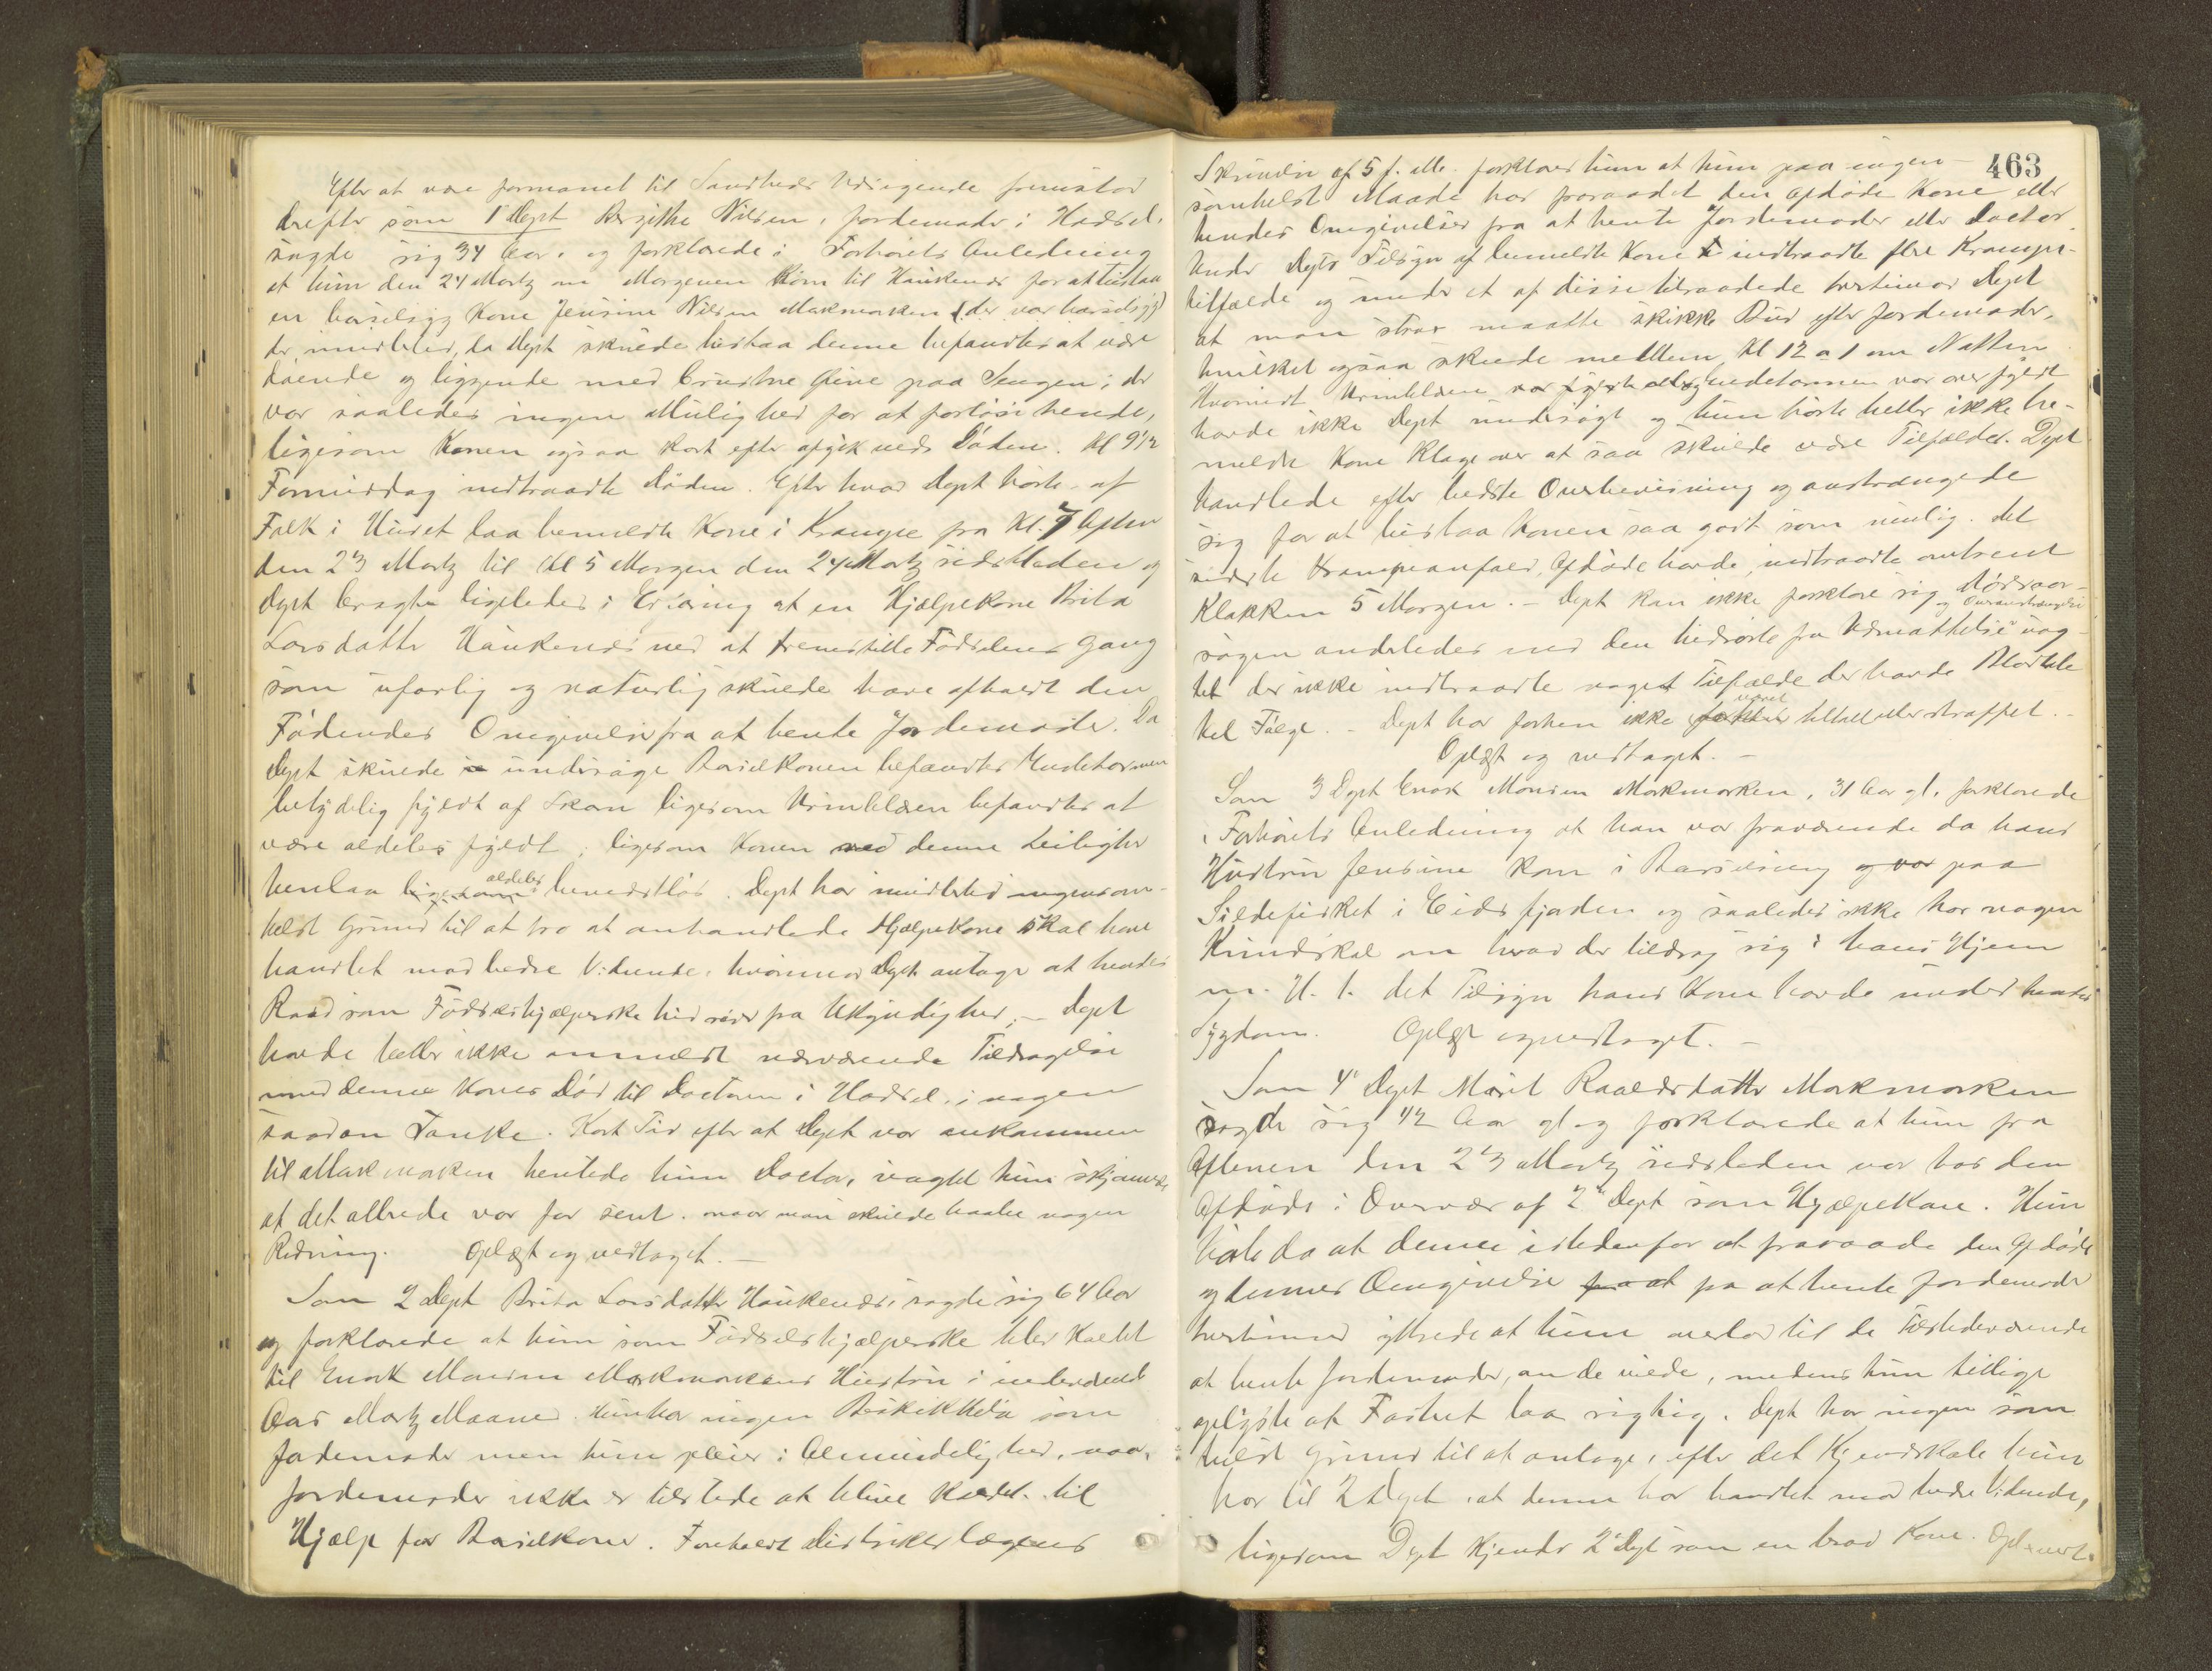 Efter at være formanet til Sandheds Udsigende fremstod
derefter som 1ste Dept Bergithe Nilsen, Jordemoder i Hadsel,
sagde sig 34 Aar, og forklarede i Forhørets Anledning
at hun den 24 Martz om Morgenen kom til Haukenæs for at bistaa
en barselsyg Kone Jensine Nilsen Markmarken (der var barselsyg)
der imidlertid, da Dept skulde bistaa denne befandtes at være
døende og liggende med brustne Øine paa Sengen; der
var saaledes ingen Mulighed for at forløse hende,
ligesom Konen ogsaa kort efter afgik ved Døden. Kl 9½
Formiddag indtraadte Døden. Efter hvad Dept hørte af
Folk i Huset laa bemeldte Kone i Krampe fra Kl. 7 Aften
den 23 Martz til Kl 5 Morgen den 24 Martz sidstleden og
Dept bragte ligeledes i Erfaring at en Hjælpekone Brita
Larsdatter Haukenæs ved at fremstille Fødselens Gang
som ufarlig og naturlig skulde have afholdt den
Fødendes Omgivelse fra at hente Jordemoder. Da
Dept skulde undersøge Barselkonen befandtes Endetarmen
betydelig fyldt af Skarn ligesom Urinblæren befandtes at
være aldeles fyldt; ligesom Konen ved denne Leilighed
henlaa ligesom aldeles bevidstløs. Dept har imidlertid ingensom-
helst Grund til at tro at omhandlede Hjælpekone skal have
handlet mod bedre Vidende, hvorimod Dept antager at hendes
Raad som Fødselshjælperske hidrører fra Ukyndighed. — Dept
havde heller ikke anmeldt nærværende Tildragelse
med denne Kones Død til Doctoren i Hadsel, i nogen
saadan Tanke. Kort Tid efter at Dept var ankommen
til Markmarken hentede hun Doctor, uagtet hun skjønnede
at det allerede var for sent. naar man skulde haabe nogen
Redning. Oplæst og vedtaget. —
Som 2 Dept Brita Larsdatter Haukenæs, sagde sig 64 Aar
og forklarede at hun som Fødselshjælperske blev kaldt
til Enok Monsen Markmarkens Hustru i indeværende
Aars Martz Maaned. Hun har ingen Beskikkelse som
Jordemoder men hun pleier i Almindelighed, naar
Jordemoder ikke er tilstede at blive kaldet til
Hjælp for Barselkoner. Foreholdt Distriktslægens
463
Skrivelse af 5 f. M. forklarer hun at hun paa ingen-
somhelst Maade har fraraadet den afdøde Kone eller
hendes Omgivelser fra at hente Jordemoder eller Doctor.
Under Depts Tilsyn af bemeldte Kone indtraadte flere Krampe-
tilfælde og under et af disse tilraadede bestemt Dept
at man strax maatte skikke Bud efter Jordemoder,
hvilket ogsaa skede mellem Kl 12 a 1 om Natten
Hvorvidt Urinblæren var fyldt eller Endetarmen var overfyldt
havde ikke Dept undersøgt og hun hørte heller ikke be-
meldte Kone klage over at saa skulde være Tilfældet. Dept
handlede efter bedste Overbevisning og anstrængede
sig for at bistaa Konen saa godt som mulig. Det
sidste Krampeanfald, Afdøde havde, indtraadte omtrent
Klokken 5 Morgen. — Dept kan ikke forklare sig Dødsaar-
sagen anderledes end den hidrørte fra Udmattelse og Overanstrængelse uag-
tet der ikke indtraadte noget Tilfælde der havde Blodtab
til Følge. — Dept har forhen ikke været tiltalt eller straffet. —
Oplæst og vedtaget. —
Som 3 Dept Enok Monsen Markmarken, 31 Aar gl. forklarede
i Forhørets Anledning at han var fraværende da hans
Hustru Jensine kom i Barselseng og var paa
Sildefisket i Eidsfjorden og saaledes ikke har nogen
Kundskab om hvad der tildrog sig i hans Hjem
m. H. t. det Tilsyn hans Kone havde under hendes
Sygdom. Oplæst og vedtaget. —
Som 4de Dept Marit Raaldsdatter Markmarken
sagde sig 42 Aar gl og forklarede at hun fra
Aftenen den 23 Martz sidstleden var hos den
Afdøde i Overvær af 2den Dept som Hjælpekone. Hun
hørte da at denne istedenfor at fraraade den Afdøde
og dennes Omgivelse fra at hente Jordemoder
bestemt yttrede at hun overlod til de Tilstedeværende
at hente Jordemoder, om de vilde, medens hun tillige
oplyste at Fostret laa rigtig. Dept har ingen som
helst Grund til at antage, efter det Kjendskab hun
har til 2 Dept, at denne har handlet mod bedre Vidende,
ligesom Dept kjender 2 Dept som en brav Kone. Opl. &amp; vedt.